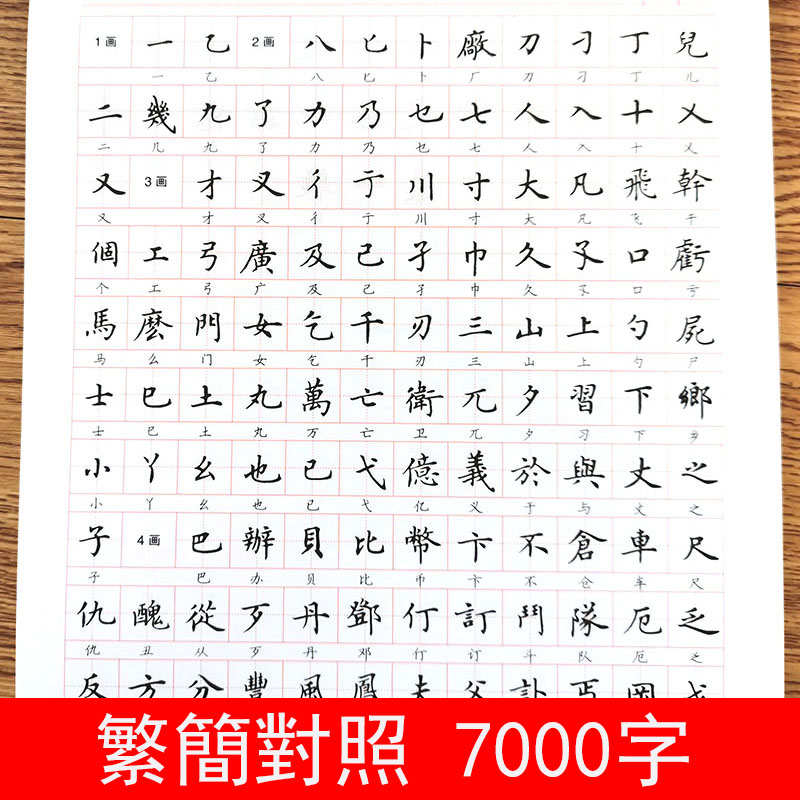 1画 一 乙 2画 八 匕 卜 廠 刀 刁 丁 兒
一 乙 八 匕 卜 厂 刀 刁 丁 儿
二 幾 九 了 力 乃 乜 七 人 入 十 乂
二 几 九 了 力 乃 乜 七 人 入 十 乂
又 3画 才 叉 彳 亍 川 寸 大 凡 飛 幹
又 才 叉 彳 亍 川 寸 大 凡 飞 干
個 工 弓 廣 及 己 孑 巾 久 孓 口 虧
个 工 弓 广 及 己 孑 巾 久 孓 口 亏
馬 麽 門 女 乞 千 刃 三 山 上 勺 屍
马 么 门 女 乞 千 刃 三 山 上 勺 尸
士 巳 土 丸 萬 亡 衛 兀 夕 習 下 鄉
士 巳 土 丸 万 亡 卫 兀 夕 习 下 乡
小 丫 幺 也 已 弋 億 義 於 與 丈 之
小 丫 幺 也 已 弋 亿 义 于 与 丈 之
子 4画 巴 辦 貝 比 幣 卞 不 倉 車 尺
子 巴 办 贝 比 币 卞 不 仓 车 尺
仇 醜 從 歹 丹 鄧 仃 訂 鬥 隊 厄 乏
仇 丑 从 歹 丹 邓 仃 订 斗 队 厄 乏
反 方 分 豐 風 鳳 夫 父 訃 丐 岡 戈
繁簡對照 7000字